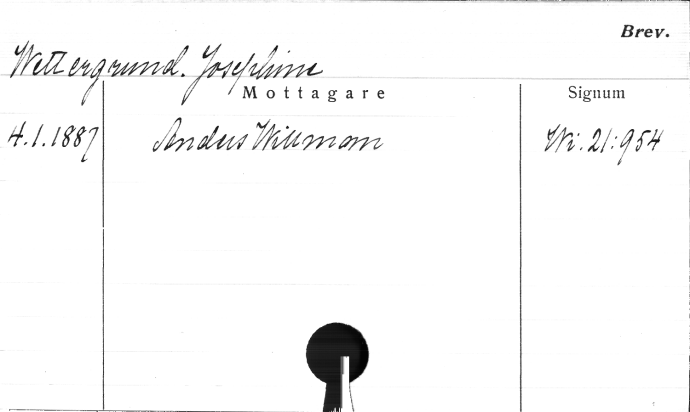 Brev.
Wettergrund. Josephine
Mottagare
Signum
4.1.1887 Anders Willman Wi. 21:954